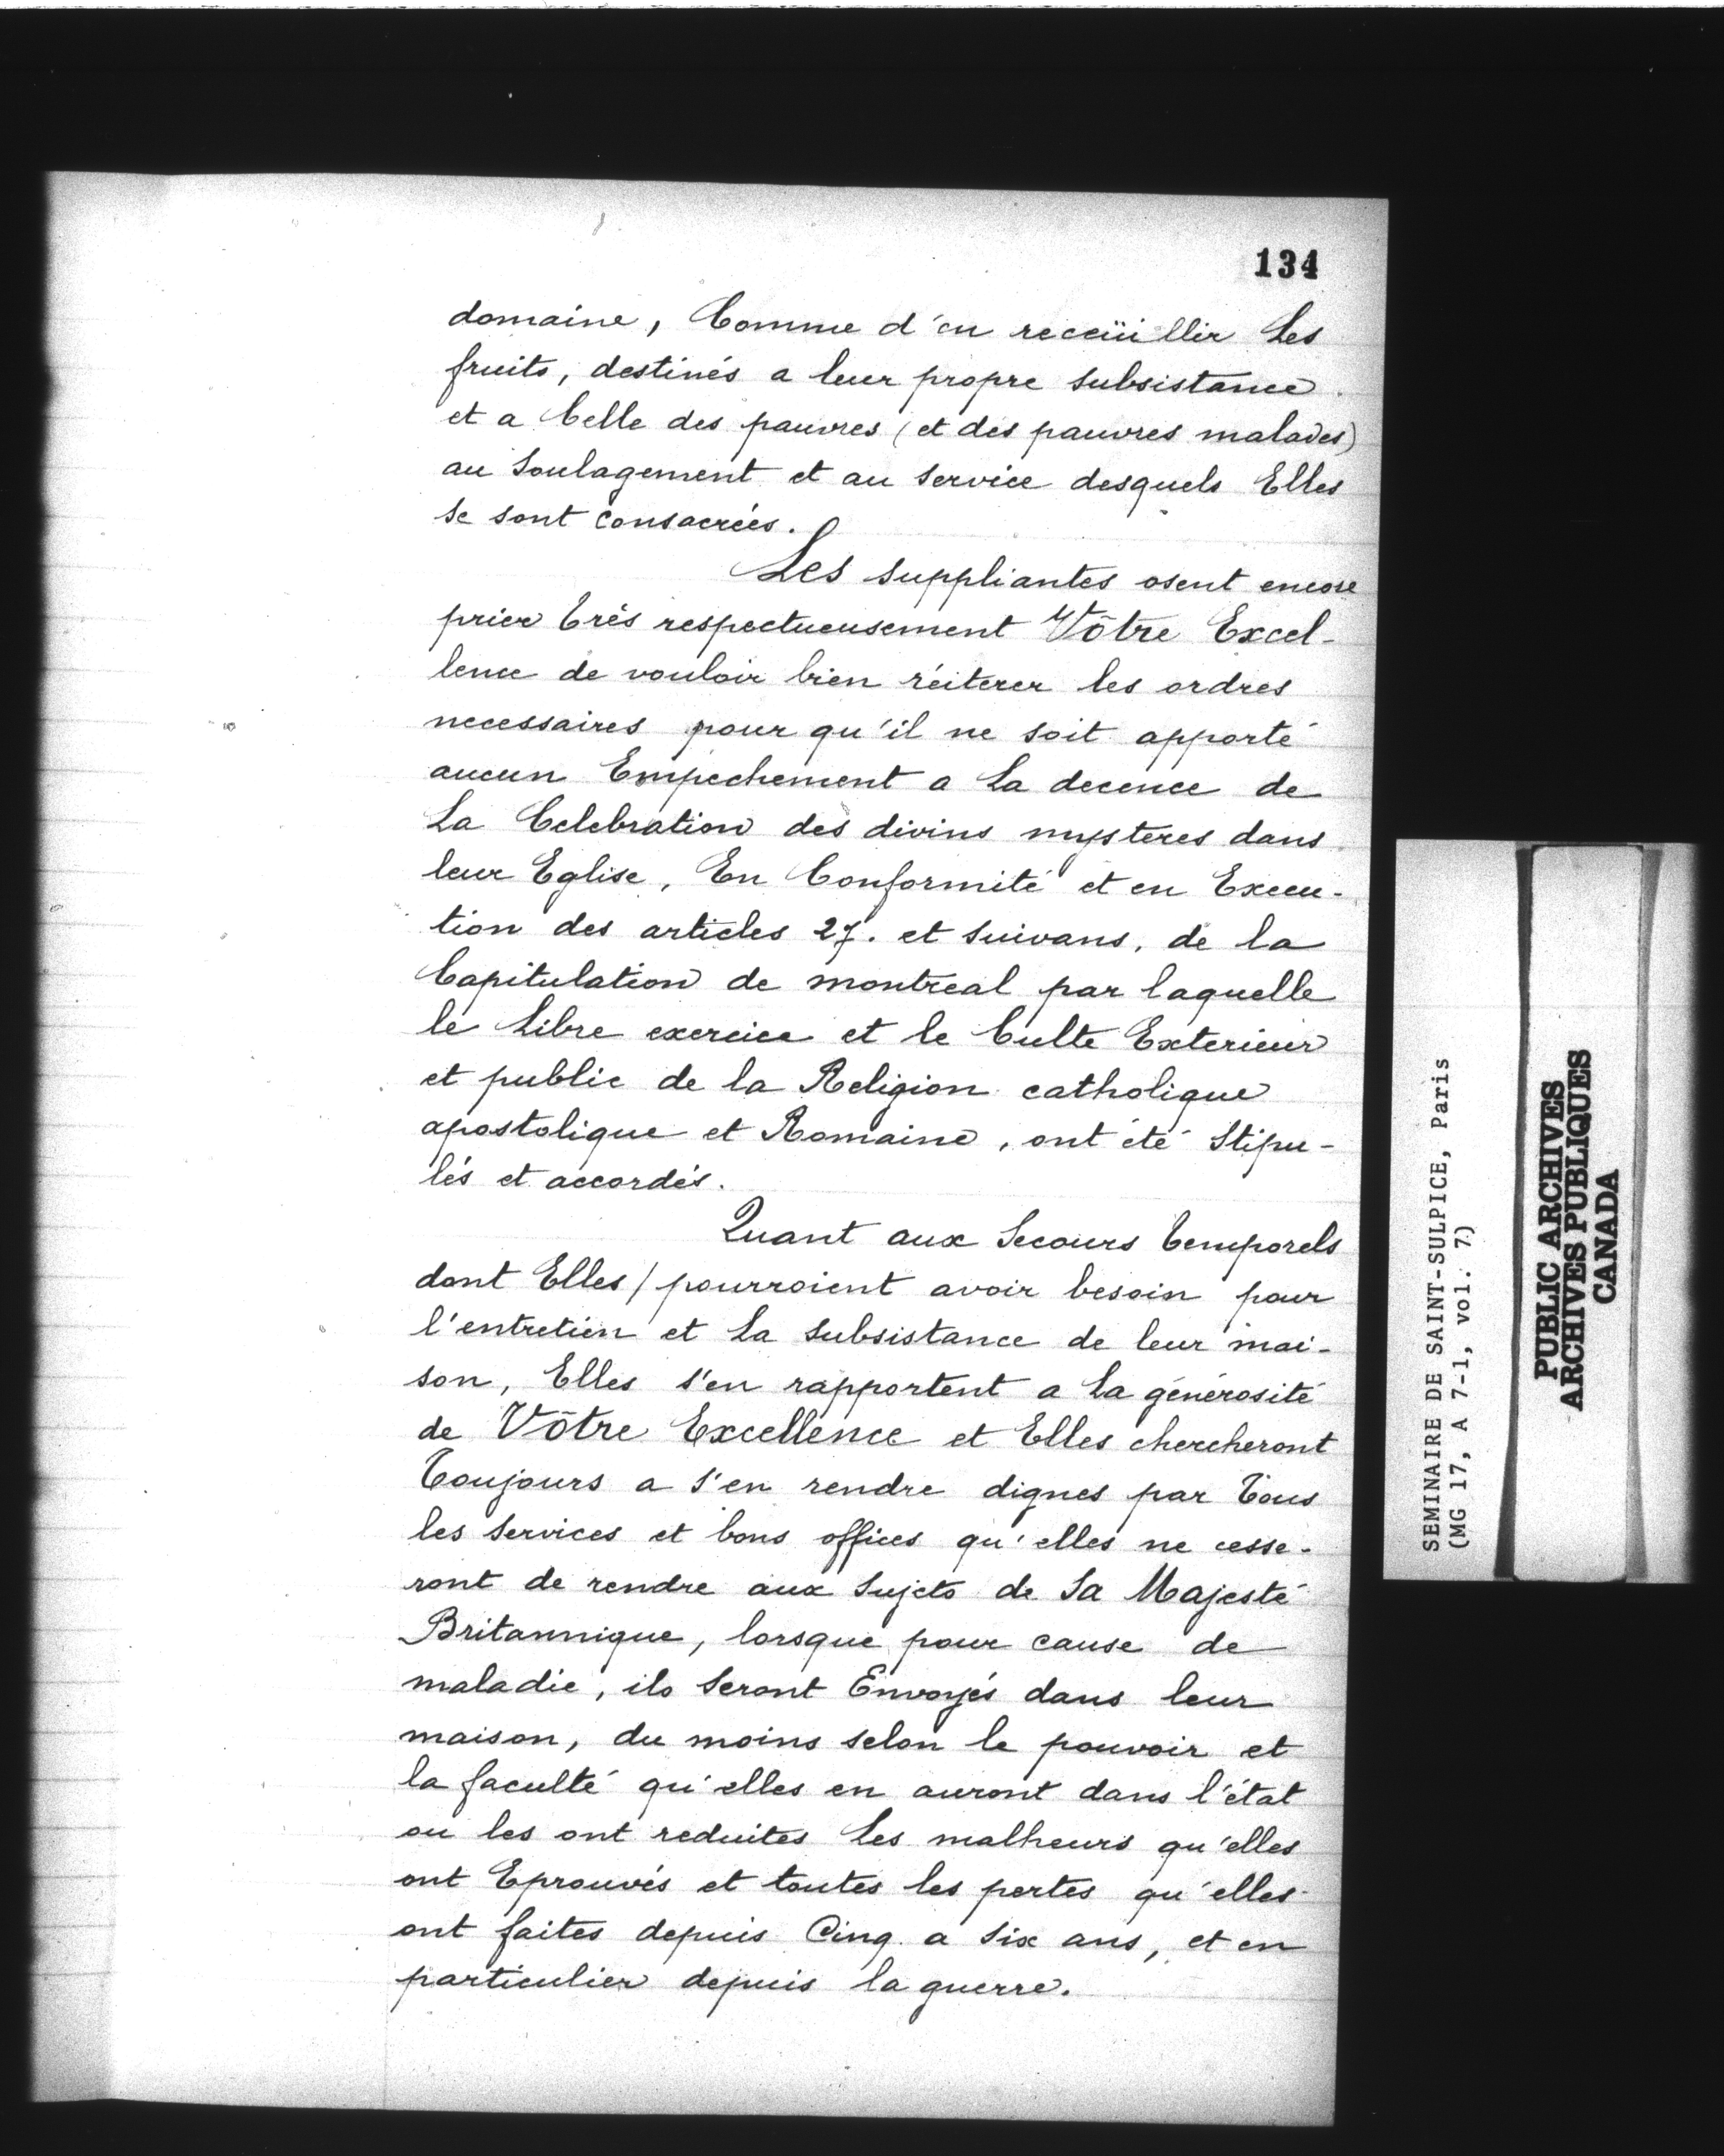 134
domaine, Comme d'en receüillir Les
fruits, destinés a leur propre subsistance
et a Celle des pauvres (et des pauvres malades)
au Soulagement et au Service desquels Elles
se sont consacrées.
Les suppliantes osent encore
prier Très respectueusement Vôtre Excel-
lence de vouloir bien réiterer les ordres
necessaires pour qu'il ne soit apporté
aucun Empechement a La decence de
La Celebration des divins mysteres dans
leur Eglise, En Conformité et en Execu-
tion des articles 27. et Suivans, de la
Capitulation de montreal par laquelle
le Libre exercice et le Culte Exterieur
et public de la Religion catholique
apostolique et Romaine, ont été Stipu-
lés et accordés.
Quant aux Secours Temporels
dont Elles / pourroient avoir besoin pour
l'entretien et La Subsistance de leur mai-
son, Elles s'en rapportent a La générosité
de Vôtre Excellence et Elles chercheront
Toujours a s'en rendre dignes par Tous
les Services et bons offices qu'elles ne cesse-
ront de rendre aux Sujets de Sa Majesté
Britannique, lorsque pour cause de
maladie, ils Seront Envoyés dans leur
maison, du moins selon le pouvoir et
la faculté qu'elles en auront dans l'état
ou les ont reduites Les malheurs qu'elles
ont Eprouvés et toutes les pertes qu'elles
ont faites depuis Cinq a Six ans, et en
particulier depuis la guerre.
SEMINAIRE DE SAINT-SULPICE, Paris
(MG 17, A 7-1, vol. 7)
PUBLIC ARCHIVES
ARCHIVES PUBLIQUES
CANADA